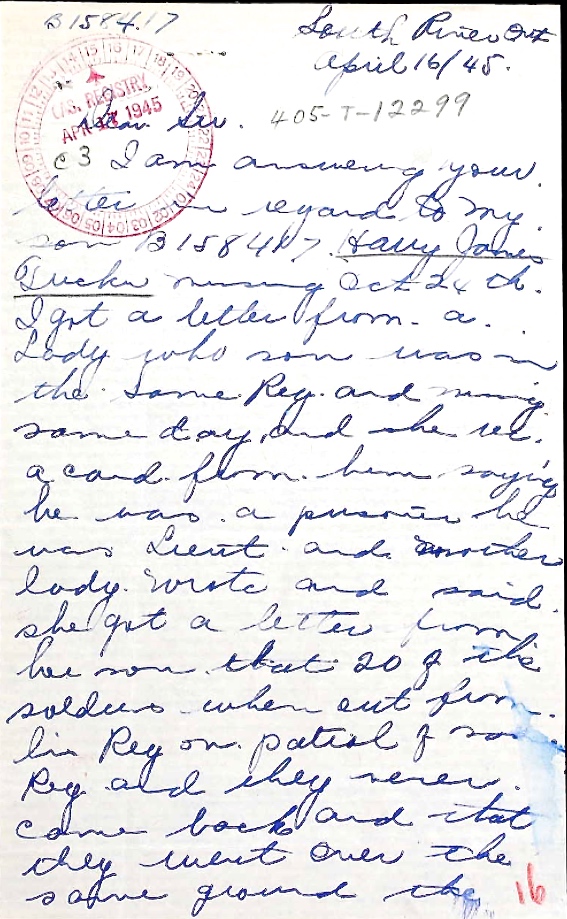 B158417
South River Ont
April 16/45.
CAS. REGISTRY
APR 1945
Dear Sir.
405-T-12299
C3 I am answering your
letter in regard to my
son B158417. Harry James
Tucker missing Oct 24 th.
I got a letter from a
Lady who son was in
the same Reg. and missing
same day, and she rec.
a card from him saying
he was a prisoner he
was Lieut. and another
lady wrote and said
she got a letter from
her son that 20 of the
soldiers when out from
his Reg on patrol of
Reg and they never
came back and that
they went over the
same ground the
16